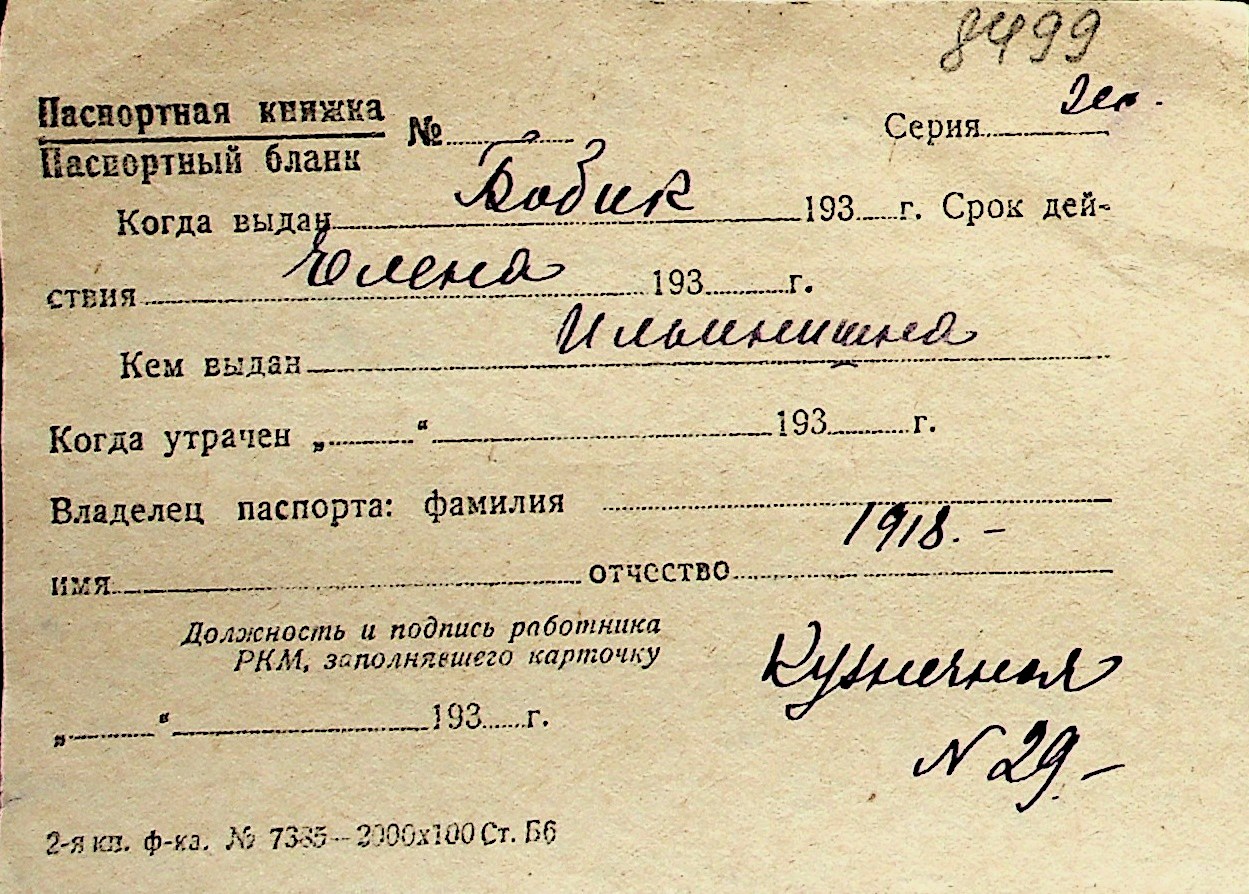 8499
Паспортная книжка
Паспортный бланк
№ Серия
Бобик
Когда выдан 193 г. Срок дей-
Елена
ствия 193 г.
Ильинишна
Кем выдан
Когда утрачен „ “ 193 г.
Владелец паспорта: фамилия
1918. –
имя отчество
Должность и подпись работника
РКМ, заполнявшего карточку
Кузнечная
„ “ 193 г.
N 29. –
2-я кп. ф-ка. № 7385 – 2000х100 Ст. Б6